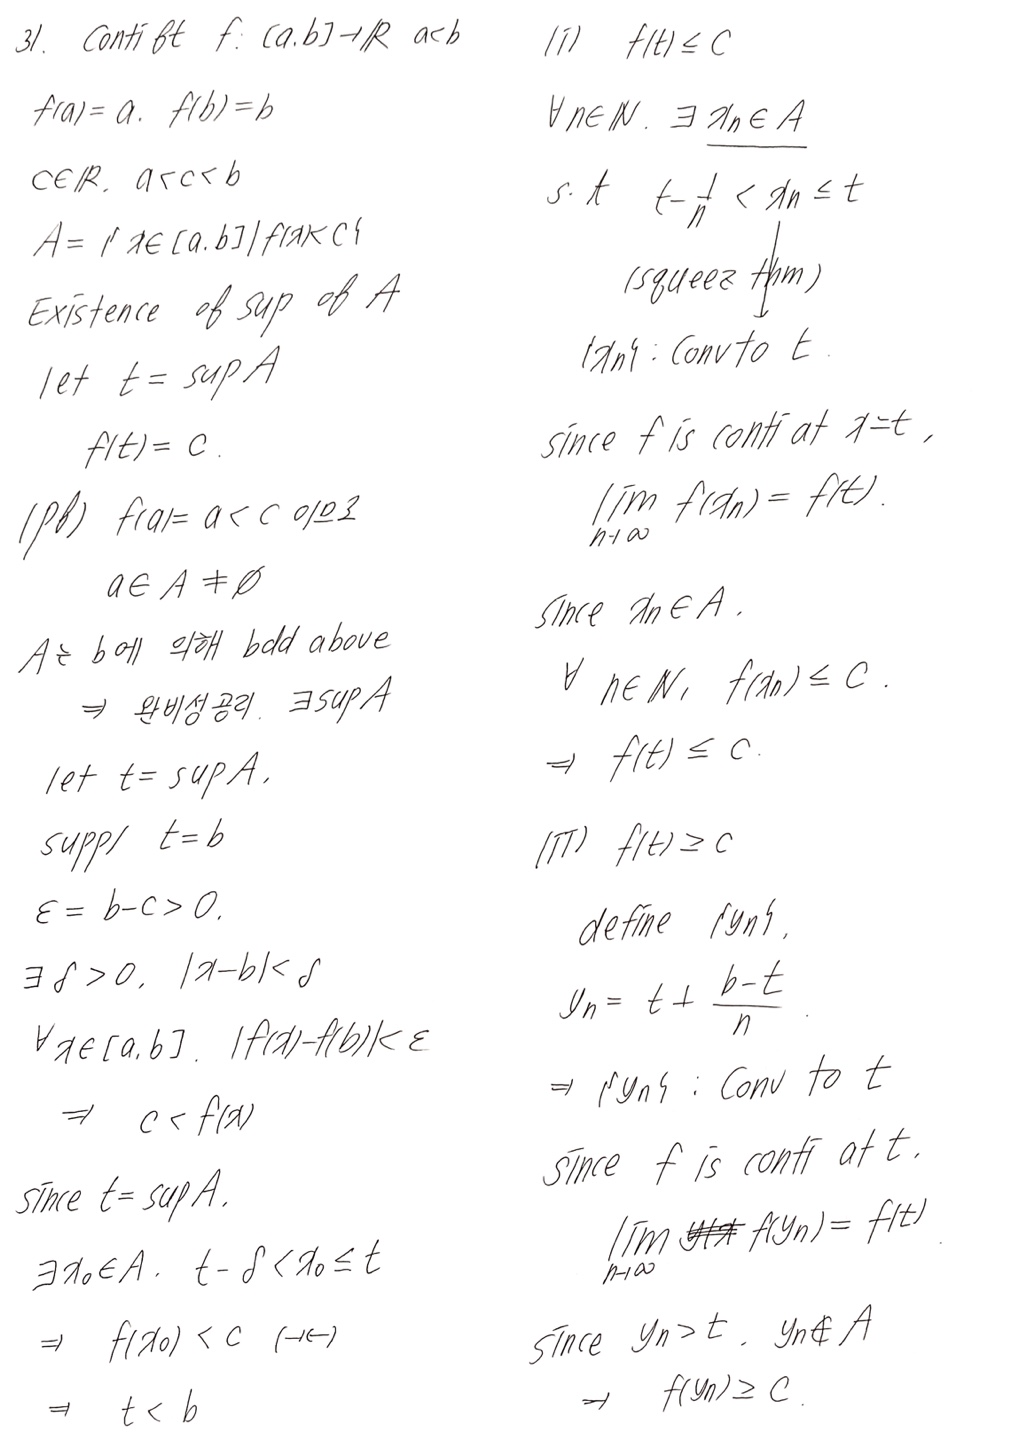 31. Conti ft f: [a.b]→ℝ a<b
f(a)=a. f(b)=b
c∈ℝ. a<c<b
A={x∈[a.b]|f(x)<c}
Existence of sup of A
let t = sup A
f(t)= c.
(pf) f(a)= a<c 이므로
a∈ A ≠ ∅
A는 b에 의해 bdd above
⇒ 완비성공리. ∃sup A
let t= sup A.
supp/ t=b
ε= b-c>0.
∃δ>0. |x-b|<δ
∀x∈[a.b]. |f(x)-f(b)|<ε
⇒ c<f(x)
since t= sup A.
∃x₀∈A. t-δ<x₀≤t
⇒ f(x₀)<c (→←)
⇒ t<b
(i) f(t)≤c
∀n∈ℕ. ∃xn∈A
s.t t-1/n < xn ≤ t
(squeez thm)
{xn}: Conv to t.
since f is conti at x=t,
lim n→∞ f(xn)= f(t).
since xn∈A.
∀ n∈ℕ, f(xn)≤c.
⇒ f(t)≤c.
(ii) f(t)≥c
define {yn},
yn= t+ (b-t)/n.
⇒ {yn}: Conv to t
since f is conti at t.
lim n→∞ f(yn)= f(t).
since yn>t. yn∉A
→ f(yn)≥c.